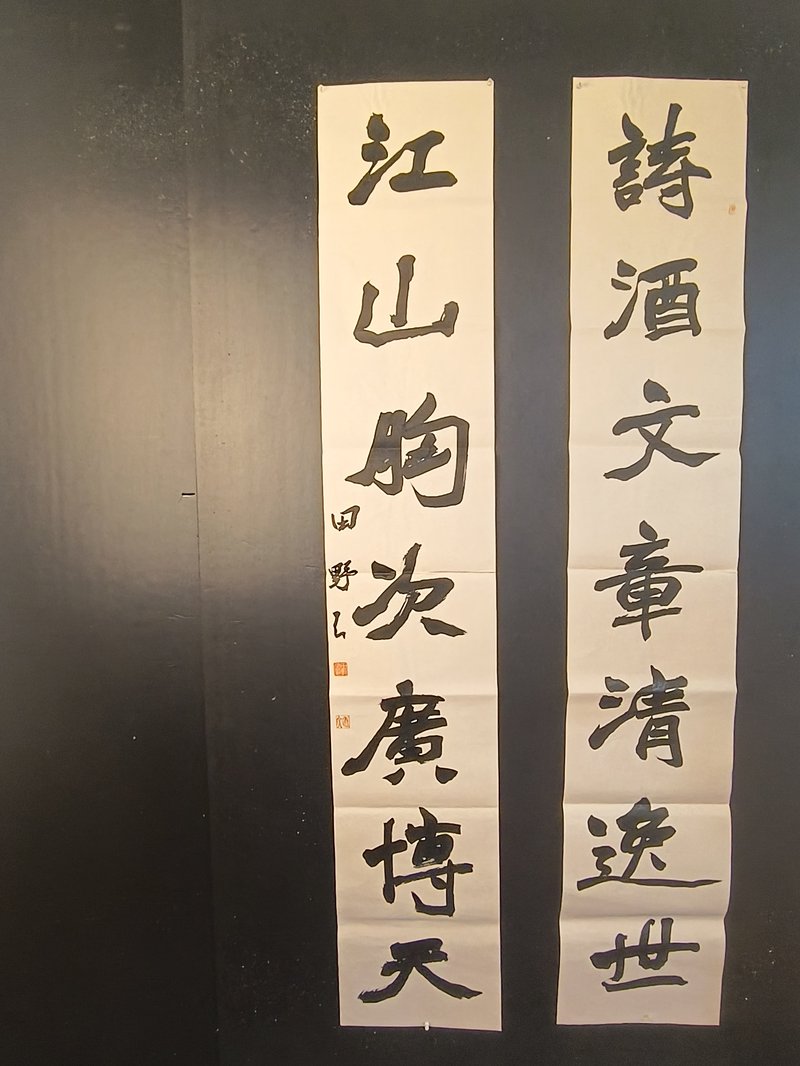 詩酒文章清逸世
江山胸次廣博天
田野